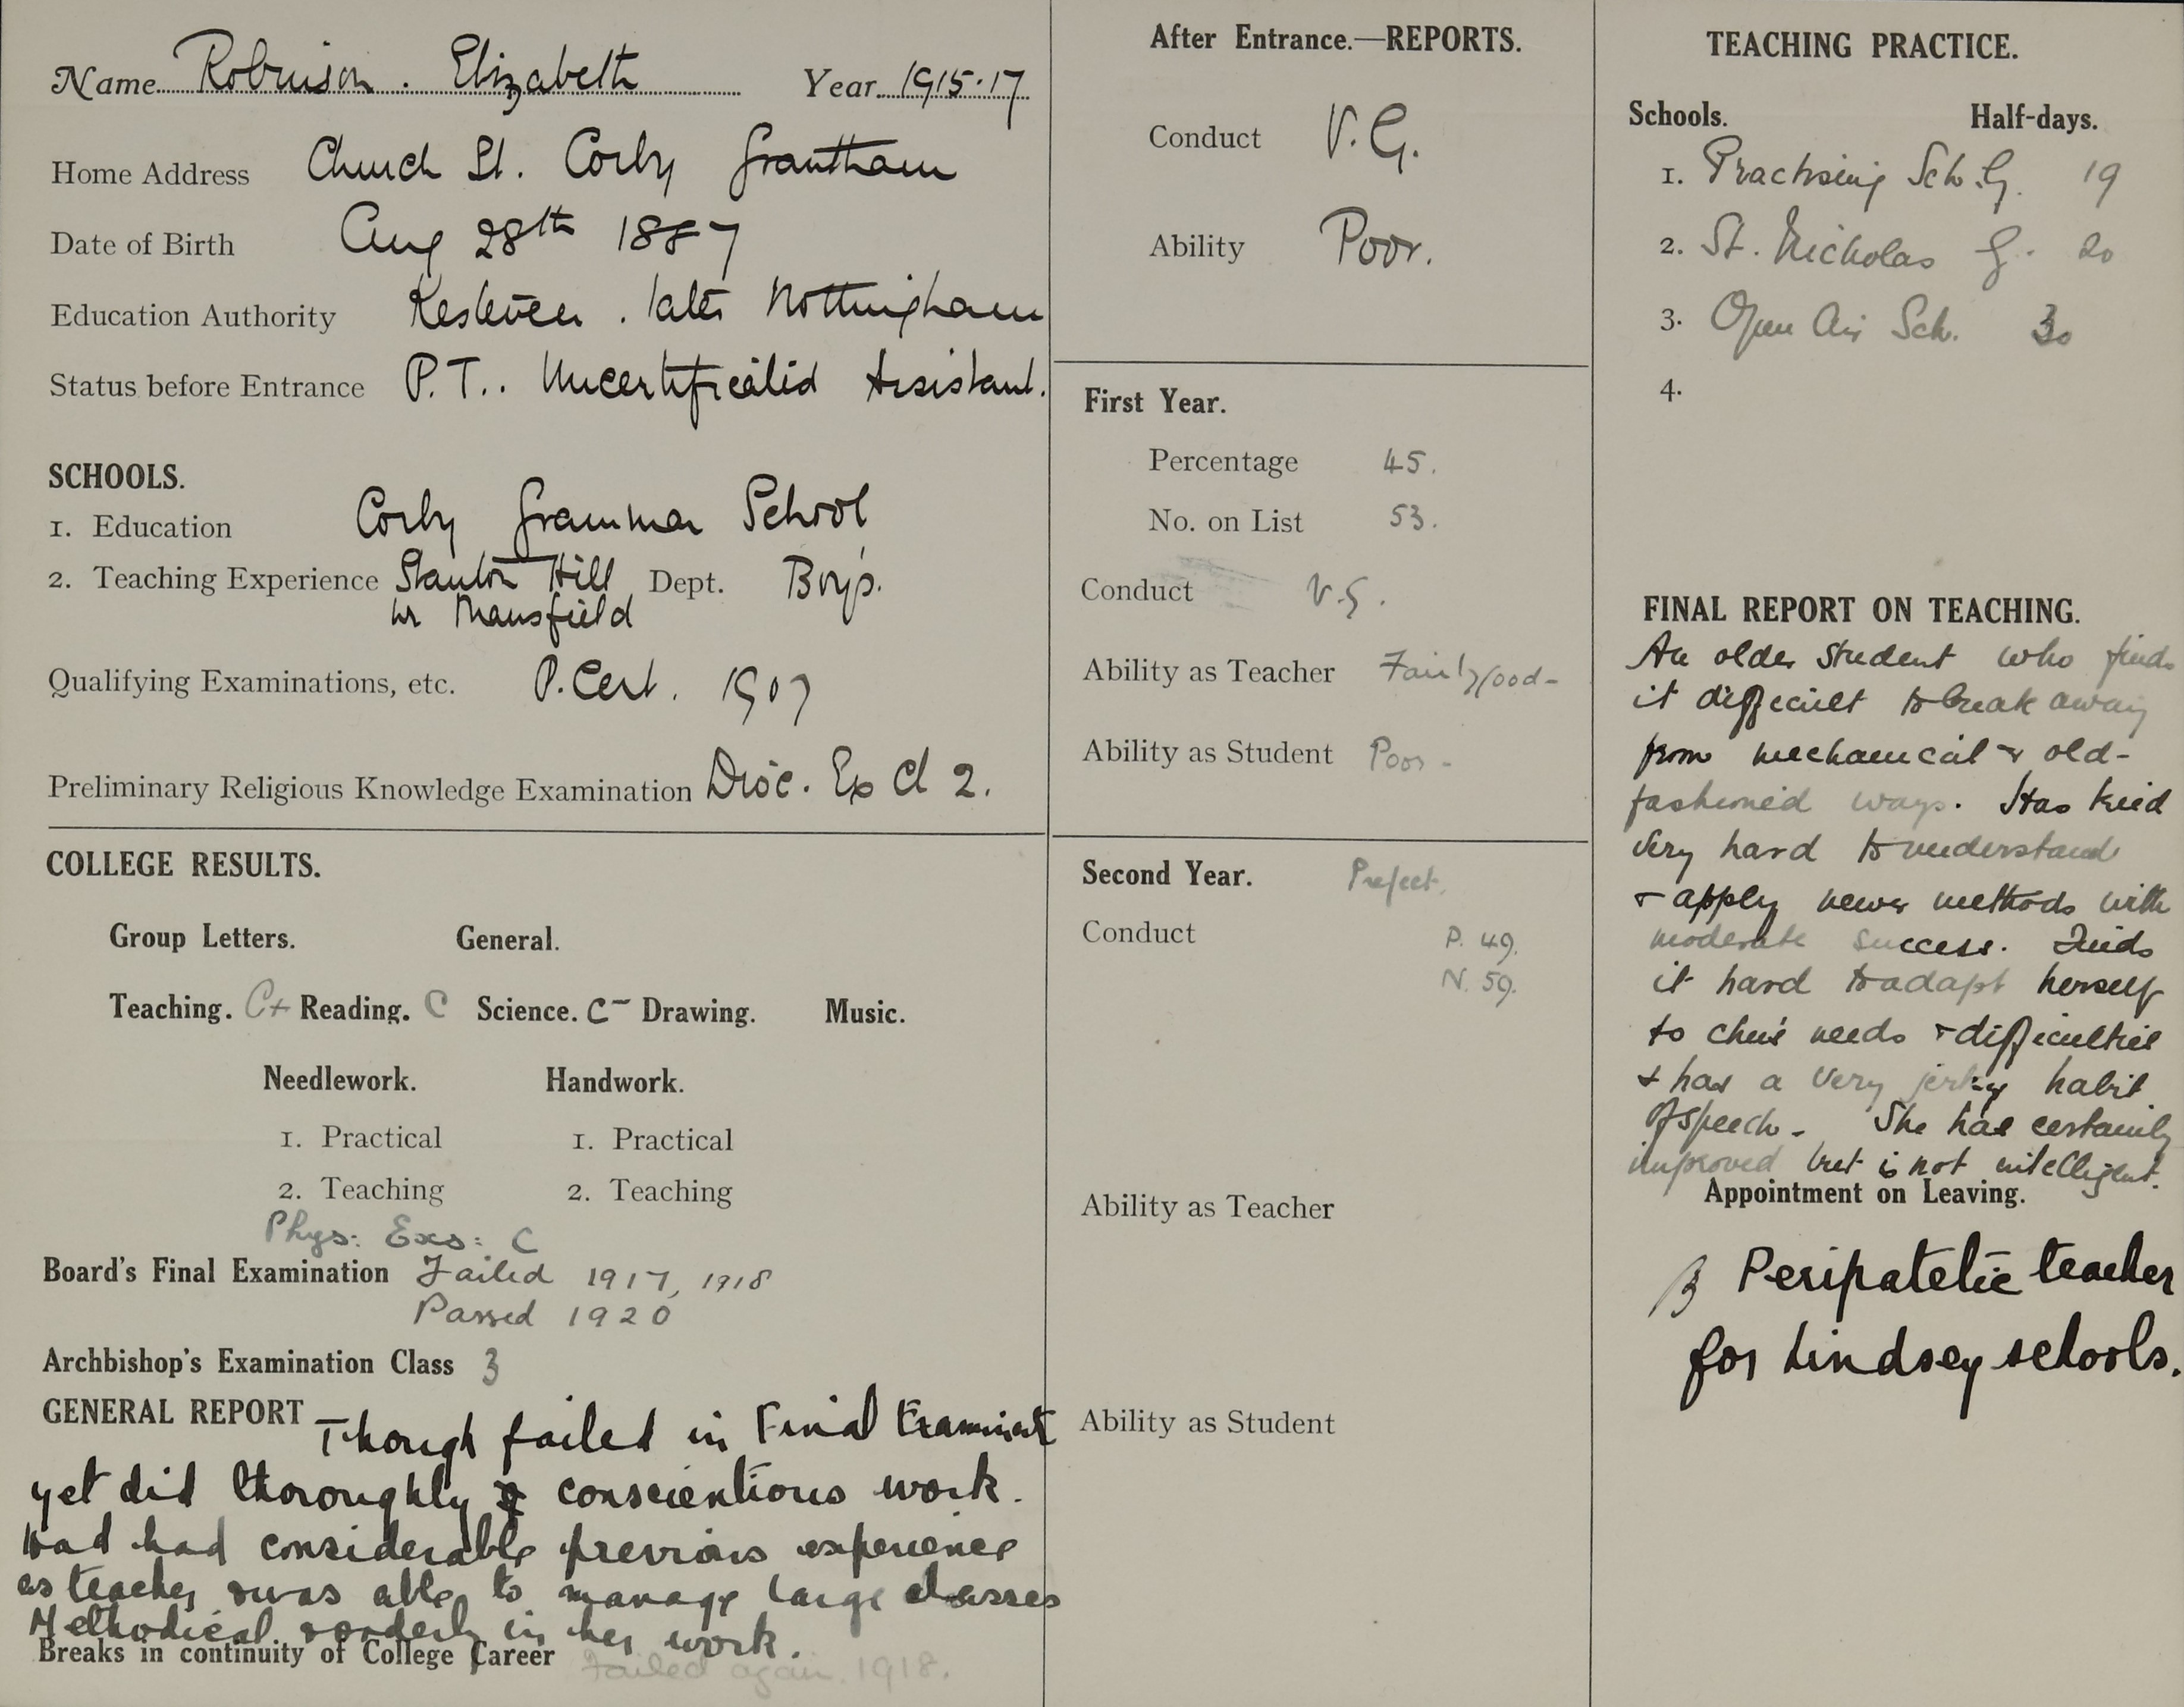 Name Robinson . Elizabeth Year 1915.17
Home Address Church St. Corby Grantham
Date of Birth Aug 28th 1887
Education Authority Kesteven . later Nottingham
Status before Entrance P.T.. Uncertificated Assistant.
SCHOOLS.
1. Education Corby Grammar School
2. Teaching Experience Stanton Hill Dept. Boys.
nr Mansfield
Qualifying Examinations, etc. P. Cert. 1907
Preliminary Religious Knowledge Examination Dioc. Ex Cl 2.
COLLEGE RESULTS.
Group Letters. General.
Teaching. C+ Reading. C Science. C- Drawing. Music.
Needlework. Handwork.
1. Practical 1. Practical
2. Teaching 2. Teaching
Phys: Exs: C
Board's Final Examination Failed 1917, 1918
Passed 1920
Archbishop's Examination Class 3
GENERAL REPORT Though failed in Final Examinat
yet did thoroughly conscientious work.
Had had considerable previous experience
as teacher & was able to manage large classes
Methodical & orderly in her work.
Breaks in continuity of College Career Failed again. 1918.
After Entrance.—REPORTS.
Conduct V.G.
Ability Poor.
First Year.
Percentage 45.
No. on List 53.
Conduct V.G.
Ability as Teacher Fairly good-
Ability as Student Poor -
Second Year. Prefect.
Conduct P. 49.
N. 59.
Ability as Teacher
Ability as Student
TEACHING PRACTICE.
Schools. Half-days.
1. Practising Sch. G. 19
2. St. Nicholas G. 20
3. Open Air Sch. 30
4.
FINAL REPORT ON TEACHING.
An older student who finds
it difficult to break away
from mechanical & old-
fashioned ways. Has tried
very hard to understand
& apply newer methods with
moderate success. Finds
it hard to adapt herself
to chn's needs & difficulties
& has a very jerky habit
of speech - She has certainly
improved but is not intelligent.
Appointment on Leaving.
Peripatetic teacher
for Lindsey schools.